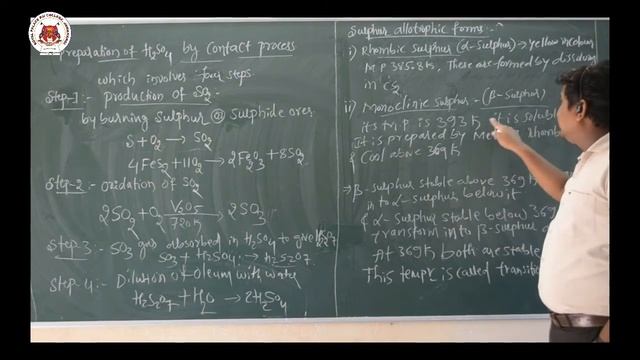 Preparation of H2SO4 by contact process
which involves four steps.
Step-1:- production of SO2
by burning Sulphur @ Sulphide ores
S + O2 → SO2
4FeS2 + 11O2 → 2Fe2O3 + 8SO2
Step-2:- oxidation of SO2
2SO2 + O2 V2O5 720K → 2SO3
Step-3:- SO3 gas absorbed in H2SO4 to give
SO3 + H2SO4 → H2S2O7.
Step-4:- Dilution of oleum with water
H2S2O7 + H2O → 2H2SO4
Sulphur allotrophic forms:-
i) Rhombic sulphur (α-sulphur) → yellow in colour
M.P 385.8K, These are formed by
in
ii) Monoclinic sulphur - (β-sulphur)
its M.P is 393K it is
It is prepared by Rhomb
& Cool above 369K
→ β-sulphur stable above 369K
in to α-sulphur below it
& α-sulphur stable below 369
transform in to β-sulphur
At 369K both are stable
This tempr is called